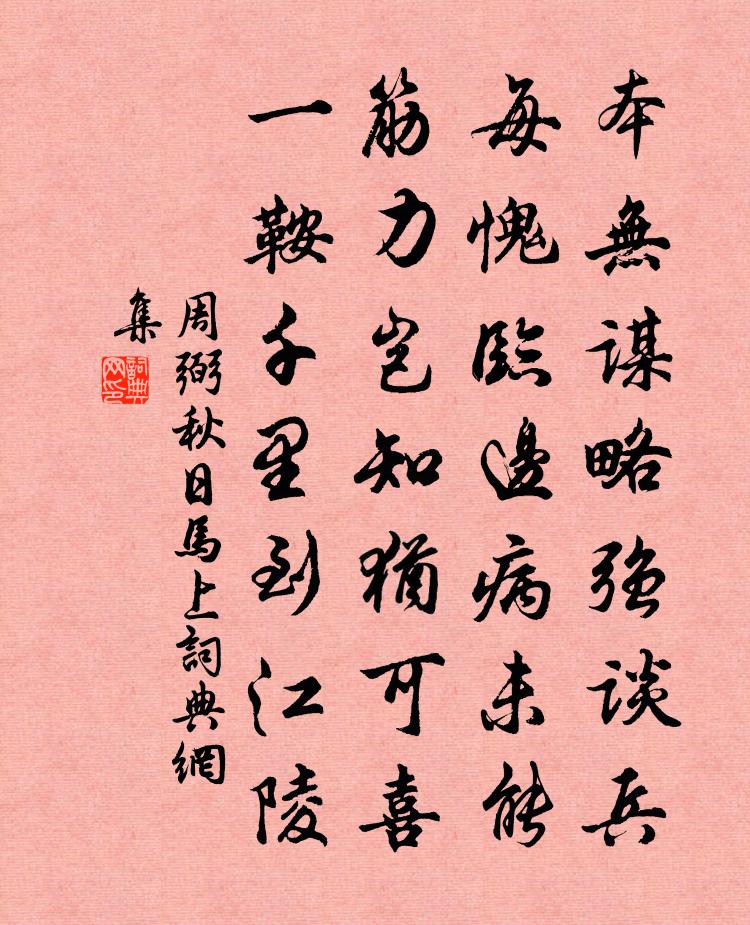 本無謀略強談兵
每愧臨邊病未能
筋力豈知猶可喜
一鞍千里到江陵
周弼秋日馬上詞典網
集
詞典
网印